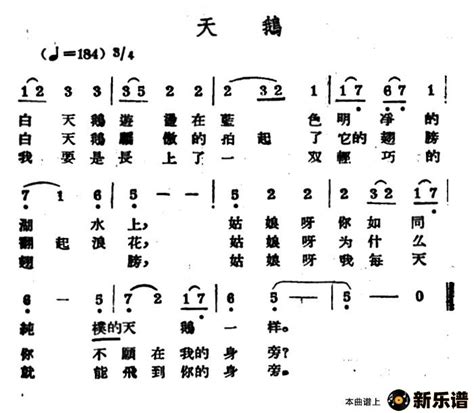 天 鵝
(♩=184) 3/4
1 2 3 3 3 1 2 2 2 3 2 1 1 7 6 7 1
白天鵝遊盪在藍 色明淨的
白天鵝驕傲的拍起了它的翅膀
我要是長上了一 双輕巧的
7 1 6 5 5 2 2 2 3 2 1 7
湖 水上, 姑娘呀你如同
翻起浪花, 姑娘呀为什么
翅 膀, 姑娘呀我每天
6 6 5 7 2 1 7 6 5 5 0
純 樸的天鵝一樣。
你 不願在我的身旁?
就 能飛到你的身旁。
本曲谱上 新乐谱